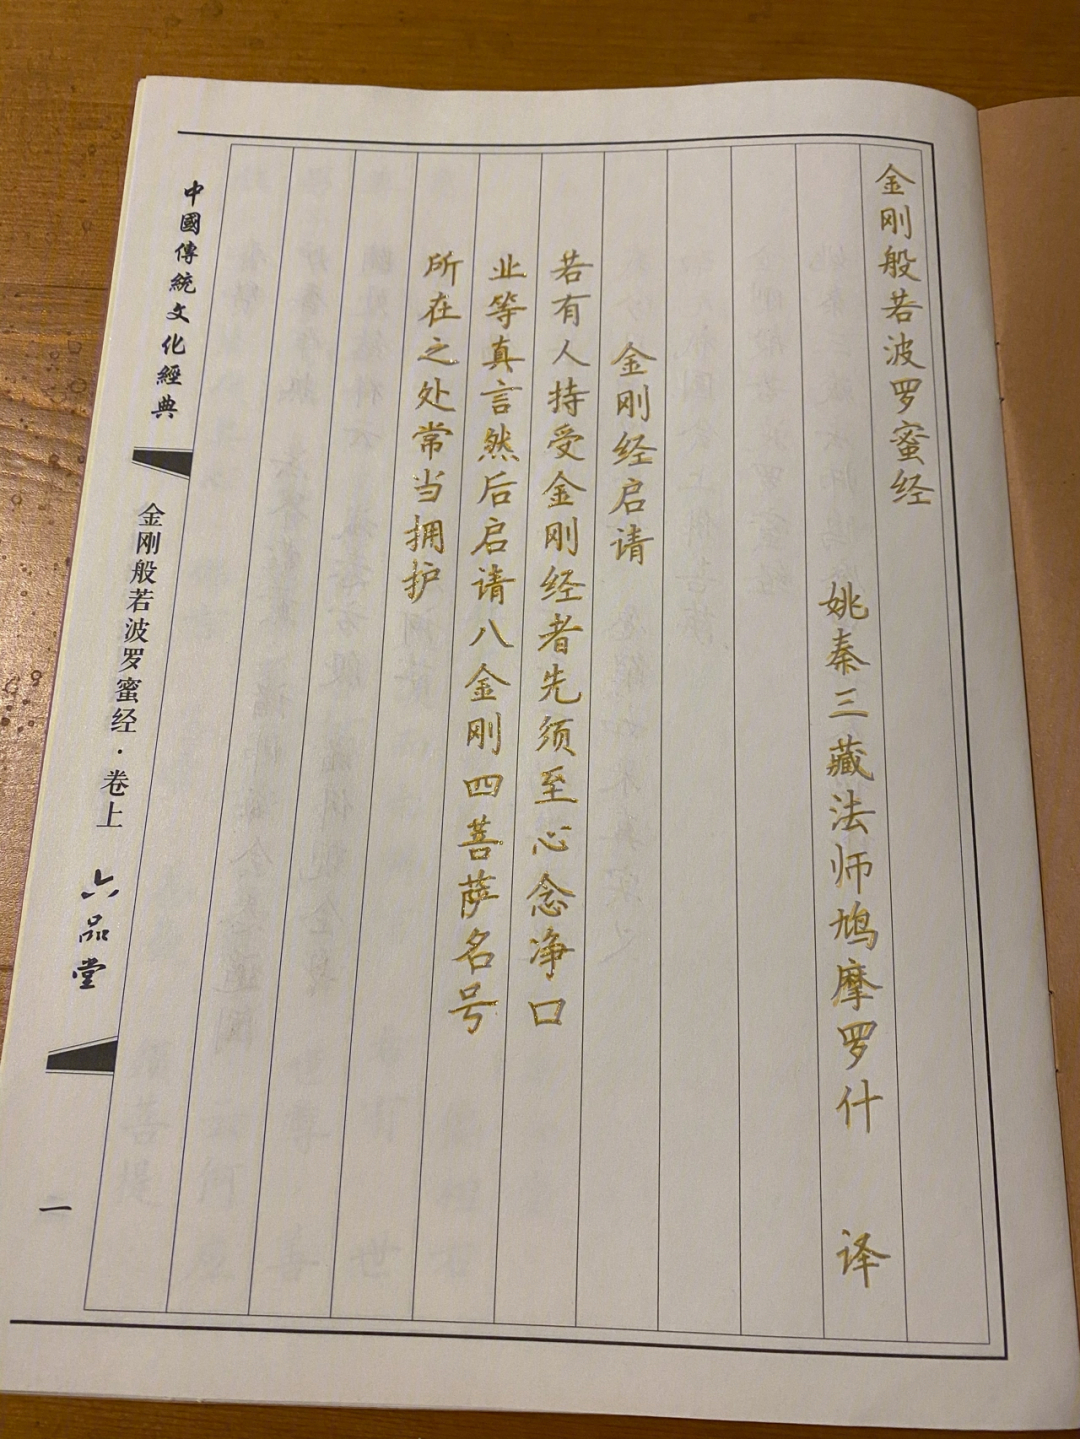 金刚般若波罗蜜经
姚秦三藏法师鸠摩罗什 译
金刚经启请
若有人持受金刚经者先须至心念净口
业等真言然后启请八金刚四菩萨名号
所在之处常当拥护
中國傳統文化經典
金刚般若波罗蜜经·卷上
六品堂
二